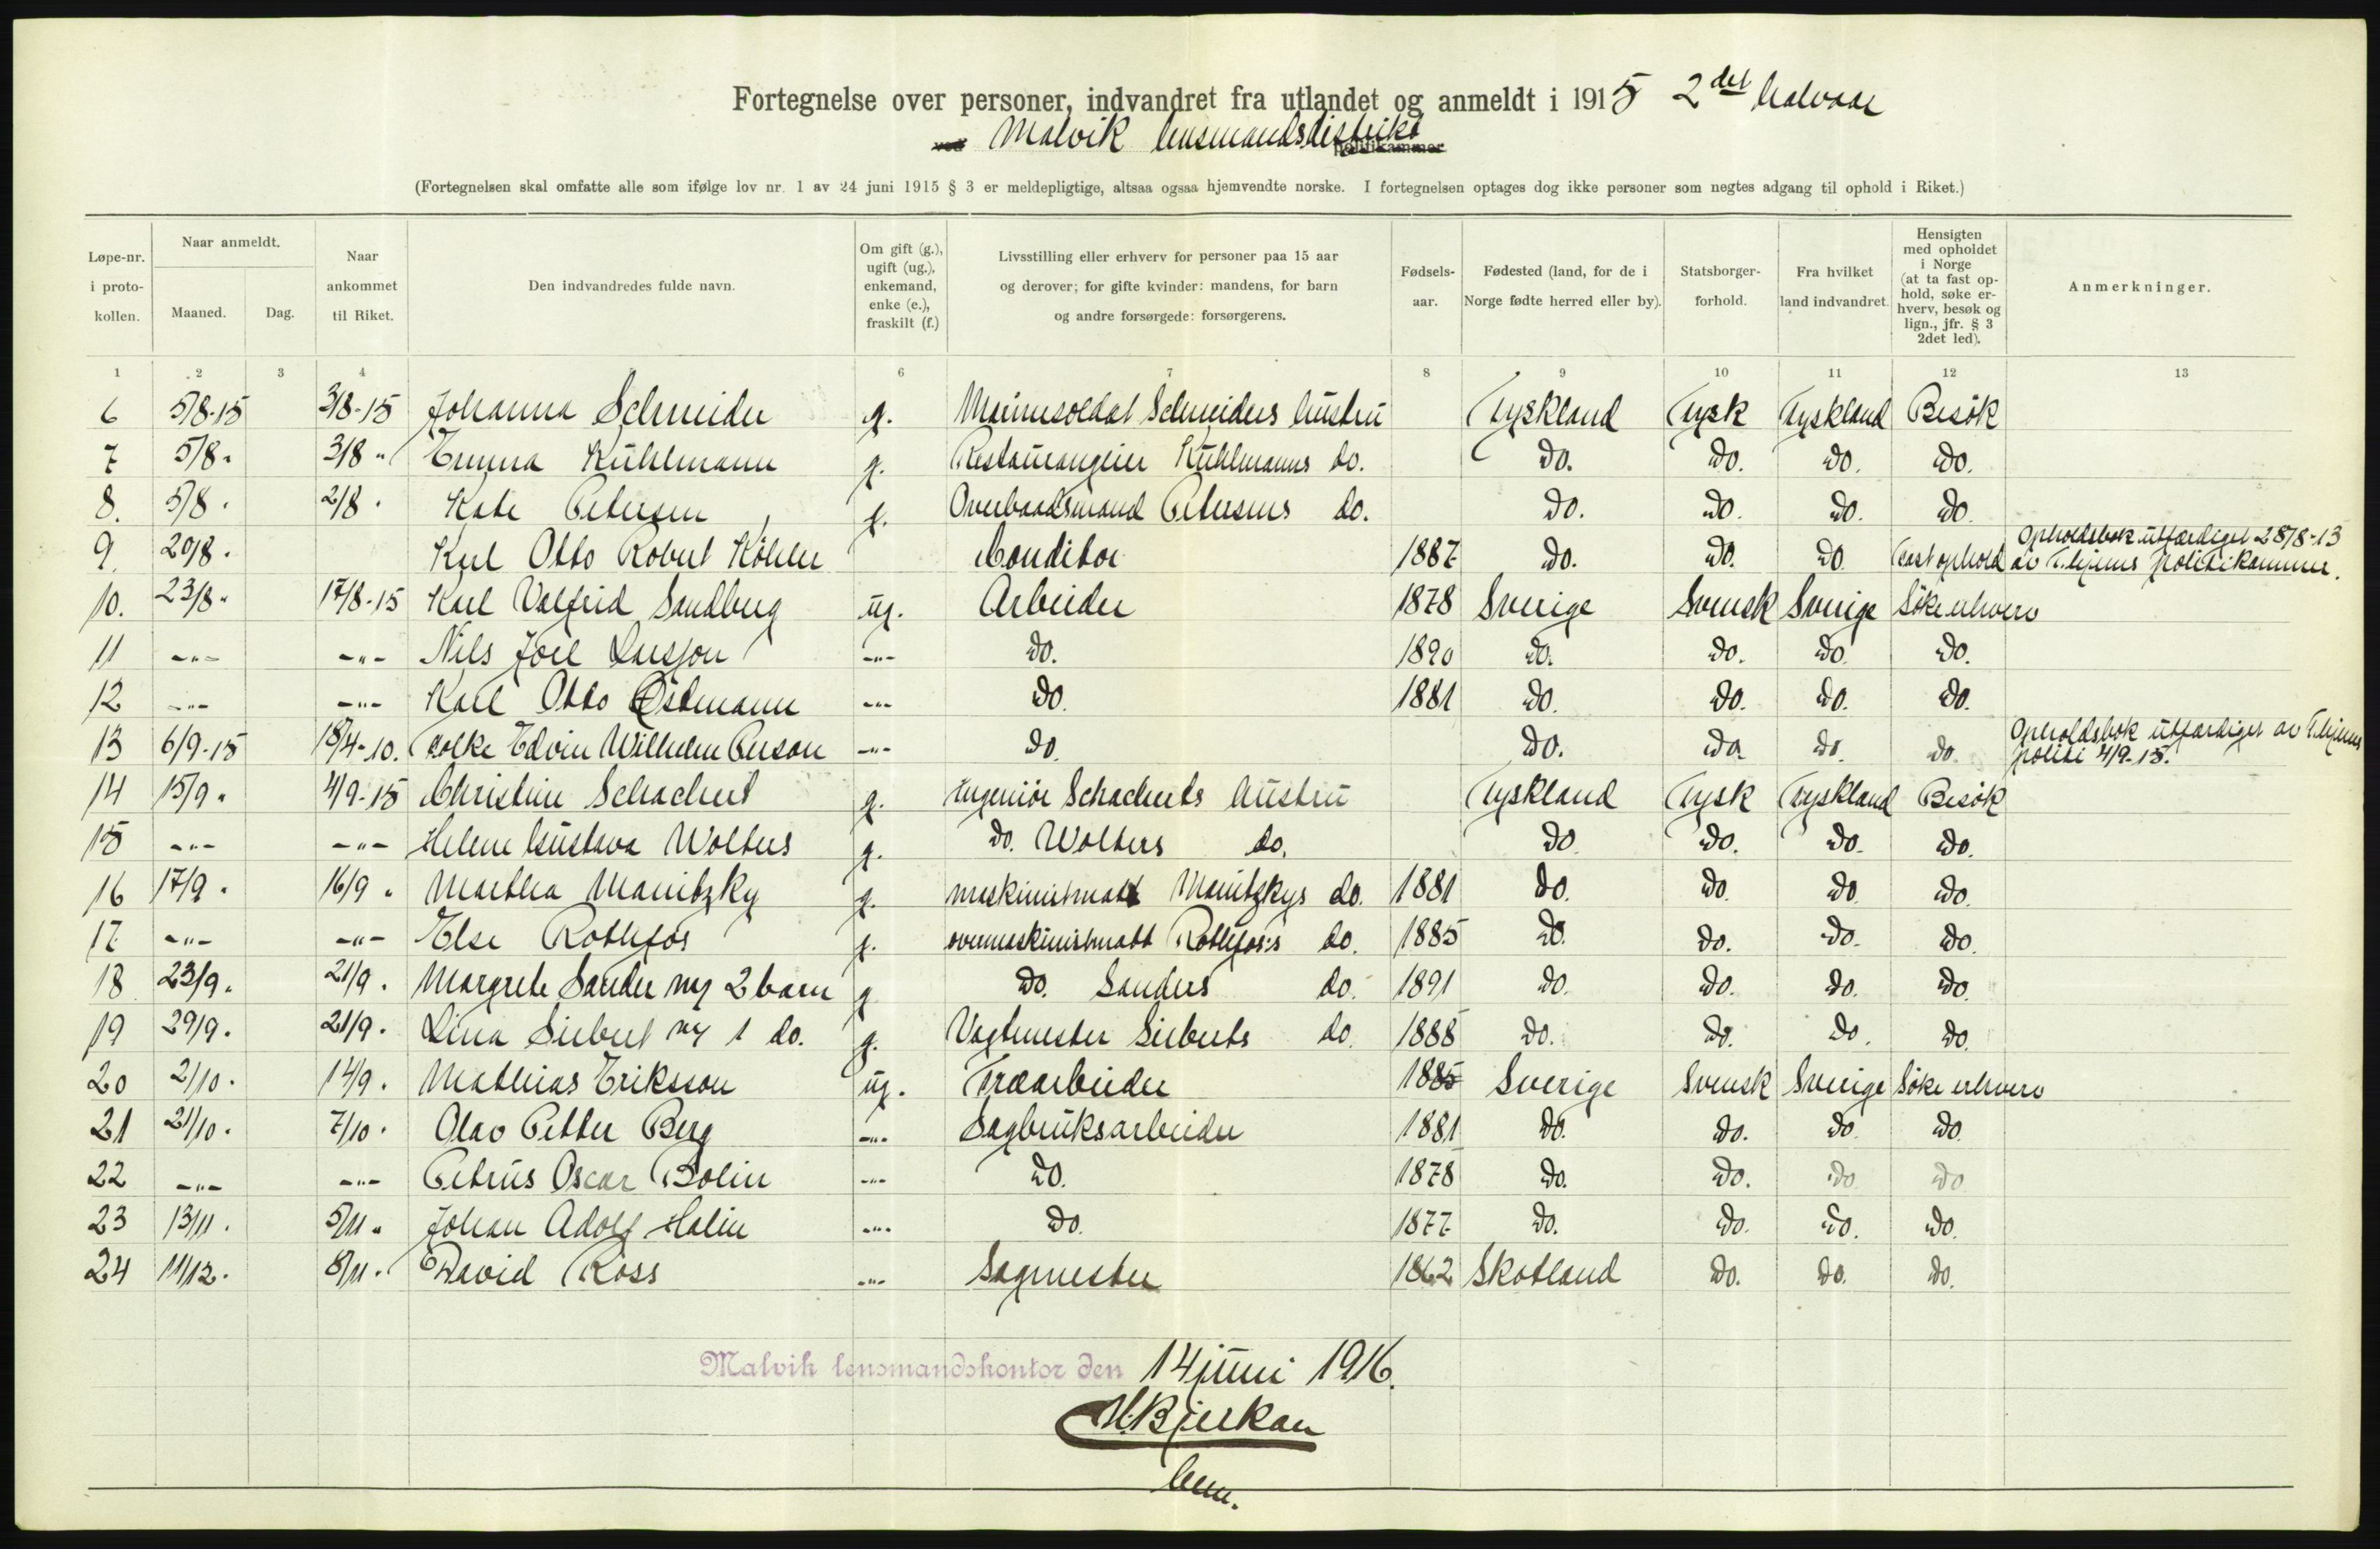 Fortegnelse over personer, indvandret fra utlandet og anmeldt i 1915 2det halvaar
ved Malvik lensmandsdistrikt politikammer
(Fortegnelsen skal omfatte alle som ifølge lov nr. 1 av 24 juni 1915 § 3 er meldepligtige, altsaa ogsaa hjemvendte norske. I fortegnelsen optages dog ikke personer som negtes adgang til ophold i Riket.)
Løpe-nr. i proto- kollen.
Naar anmeldt. Maaned. Dag.
Naar ankommet til Riket.
Den indvandredes fulde navn.
Om gift (g.), ugift (ug.), enkemand, enke (e.), fraskilt (f.)
Livsstilling eller erhverv for personer paa 15 aar og derover; for gifte kvinder: mandens, for barn og andre forsørgede: forsørgerens.
Fødsels- aar.
Fødested (land, for de i Norge fødte herred eller by).
Statsborger- forhold.
Fra hvilket land indvandret.
Hensigten med opholdet i Norge (at ta fast op- hold, søke er- hverv, besøk og lign., jfr. § 3 2det led).
Anmerkninger.
1 2 3 4 6 7 8 9 10 11 12 13
6 5/8-15 3/8-15 Johanna Schneider g. Marinesoldat Schneiders hustru Tyskland Tysk Tyskland Besøk
7 5/8 " 3/8 " Emma Kühlmann g. Restauratupeier Kühlmanns do. do. do. do. do.
8. 5/8 . 2/8 . Kate Petersen g. Overbaadsmand Petersens do. do. do. do. do.
9. 20/8 . Karl Otto Robert Köhler Conditor 1887 do. do. do. Fast ophold Opholdsbok utfærdiget 28/8-13 av T.hjems politikammer.
10. 23/8 " 17/8-15 Karl Valfrid Sandberg ug. Arbeider 1878 Sverige Svensk Sverige Søke erhverv
11 -"- -"- Nils Joel Larsson -"- do. 1890 do. do. do. do.
12 -"- -"- Karl Otto Östmann -"- do. 1881 do. do. do. do.
13 6/9-15 18/4-10. Folke Edvin Wilhelm Person -"- do. do. do. do. do. Opholdsbok utfærdiget av T.hjems politi 4/9-15.
14 15/9 " 4/9-15 Christine Schachert g. Ingeniør Schacherts hustru Tyskland Tysk Tyskland Besøk
15 -"- -"- Helene Gustava Wolters g. do. Wolters do. do. do. do. do.
16 17/9 . 16/9 " Martha Manitzky g. maskinistmatt Manitzkys do. 1881 do. do. do. do.
17 -"- -"- Else Rothfos g. overmaskinistmatt Rothfos's do. 1885 do. do. do. do.
18 23/9 . 21/9 . Margrete Sander m/ 2 barn g. do. Sanders do. 1891 do. do. do. do.
19 29/9 . 21/9 . Lina Siebert m/ 1 do. g. Vagtmester Sieberts do. 1888 do. do. do. do.
20 2/10 . 14/9 . Mathias Eriksson ug. Træarbeider 1885 Sverige Svensk Sverige Søke erhverv
21 21/10 . 7/10 . Olav Petter Berg -"- Sagbruksarbeider 1881 do. do. do. do.
22 -"- -"- Petrus Oscar Bolin -"- do. 1878 do. do. do. do.
23 13/11 . 5/11 " Johan Adolf Halin -"- do. 1877 do. do. do. do.
24 11/12 . 8/11 . David Ross -"- Sagmester 1862 Skotland do. do. do.
Malvik lensmandskontor den 14 juni 1916.
Bjerkan
lensm.